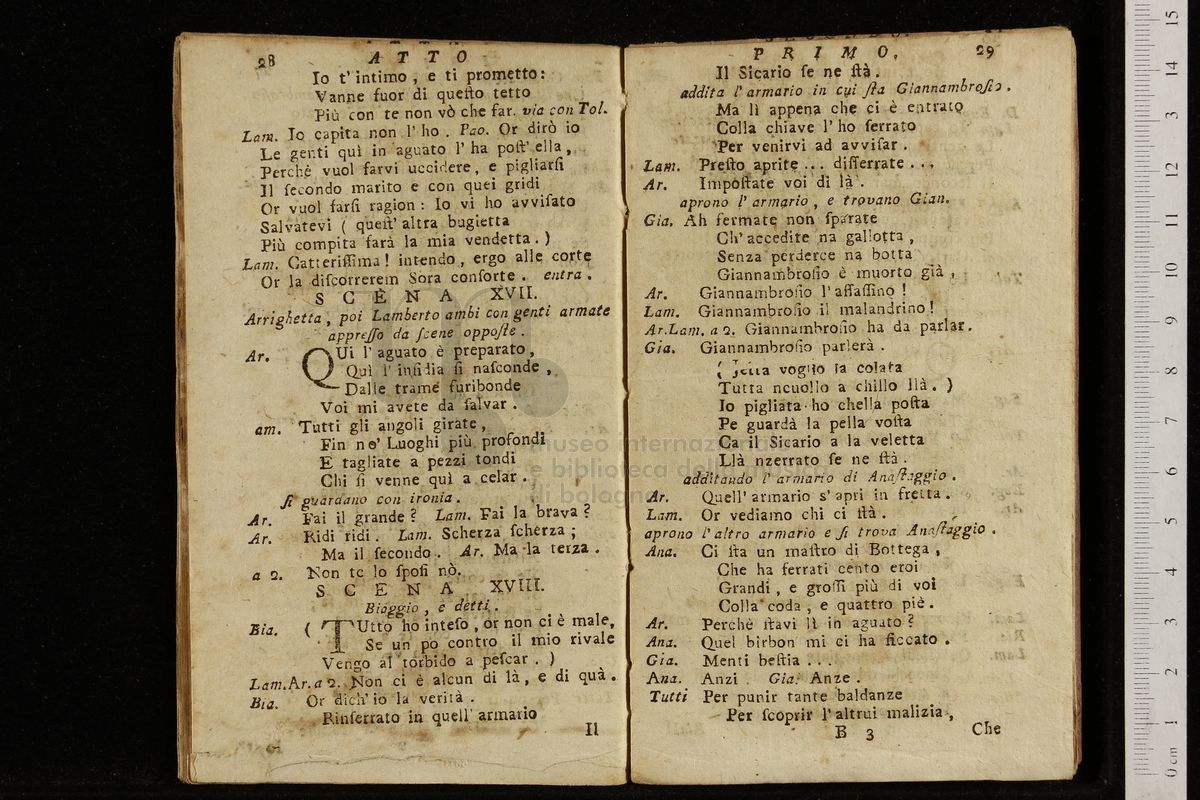 28 ATTO
Io t' intimo , e ti prometto :
Vanne fuor di queſto tetto
Più con te non vò che far. via con Tol.
Lam. Io capita non l' ho . Pao. Or dirò io
Le genti quì in aguato l' ha poſt' ella ,
Perchè vuol farvi uccidere , e pigliarſi
Il ſecondo marito e con quei gridi
Or vuol farſi ragion : Io vi ho avviſato
Salvatevi ( queſt' altra bugietta
Più compita farà la mia vendetta . )
Lam. Catteriſſima ! intendo , ergo alle corte
Or la diſcorrerem Sora conſorte . entra .
SCENA XVII.
Arrighetta , poi Lamberto ambi con genti armate
appreſſo da ſcene oppoſte .
Ar. QUi l' aguato è preparato ,
Quì l' inſidia ſi naſconde ,
Dalle trame furibonde
Voi mi avete da ſalvar .
am. Tutti gli angoli girate ,
Fin ne' Luoghi più profondi
E tagliate a pezzi tondi
Chi ſi venne quì a celar .
ſi guardano con ironia .
Ar. Fai il grande ? Lam. Fai la brava ?
Ar. Ridi ridi . Lam. Scherza ſcherza ;
Ma il ſecondo . Ar. Ma la terza .
a 2. Non te lo ſpoſi nò.
SCENA XVIII.
Biaggio , e detti .
Bia. ( TUtto ho inteſo , or non ci è male,
Se un po contro il mio rivale
Vengo al torbido a peſcar . )
Lam.Ar.a 2. Non ci è alcun di là , e di quà .
Bia. Or dich' io la verità .
Rinſerrato in quell' armario
Il
PRIMO. 29
Il Sicario ſe ne ſtà .
addita l' armario in cui ſta Giannambroſio .
Ma lì appena che ci è entrato
Colla chiave l' ho ferrato
Per venirvi ad avviſar .
Lam. Preſto aprite ... diſſerrate ...
Ar. Impoſtate voi di là .
aprono l' armario , e trovano Gian.
Gia. Ah fermate non ſparate
Ch' accedite na gallotta ,
Senza perderce na botta
Giannambroſio è muorto già ,
Ar. Giannambroſio l' aſſaſſino !
Lam. Giannambroſio il malandrino !
Ar.Lam. a 2. Giannambroſio ha da parlar.
Gia. Giannambroſio parlerà .
( voglio la colata
Tutta ncuollo a chillo llà . )
Io pigliata ho chella poſta
Pe guardà la pella voſta
Ca il Sicario a la veletta
Llà nzerrato ſe ne ſtà .
additando l' armario di Anaſtaggio .
Ar. Quell' armario s' apri in fretta .
Lam. Or vediamo chi ci ſtà .
aprono l' altro armario e ſi trova Anaſtaggio .
Ana. Ci ſta un maſtro di Bottega ,
Che ha ferrati cento eroi
Grandi , e groſſi più di voi
Colla coda , e quattro piè .
Ar. Perchè ſtavi lì in aguato ?
Ana. Quel birbon mi ci ha ficcato .
Gia. Menti beſtia ...
Ana. Anzi . Gia. Anze .
Tutti Per punir tante baldanze
Per ſcoprir l' altrui malizia ,
B 3 Che